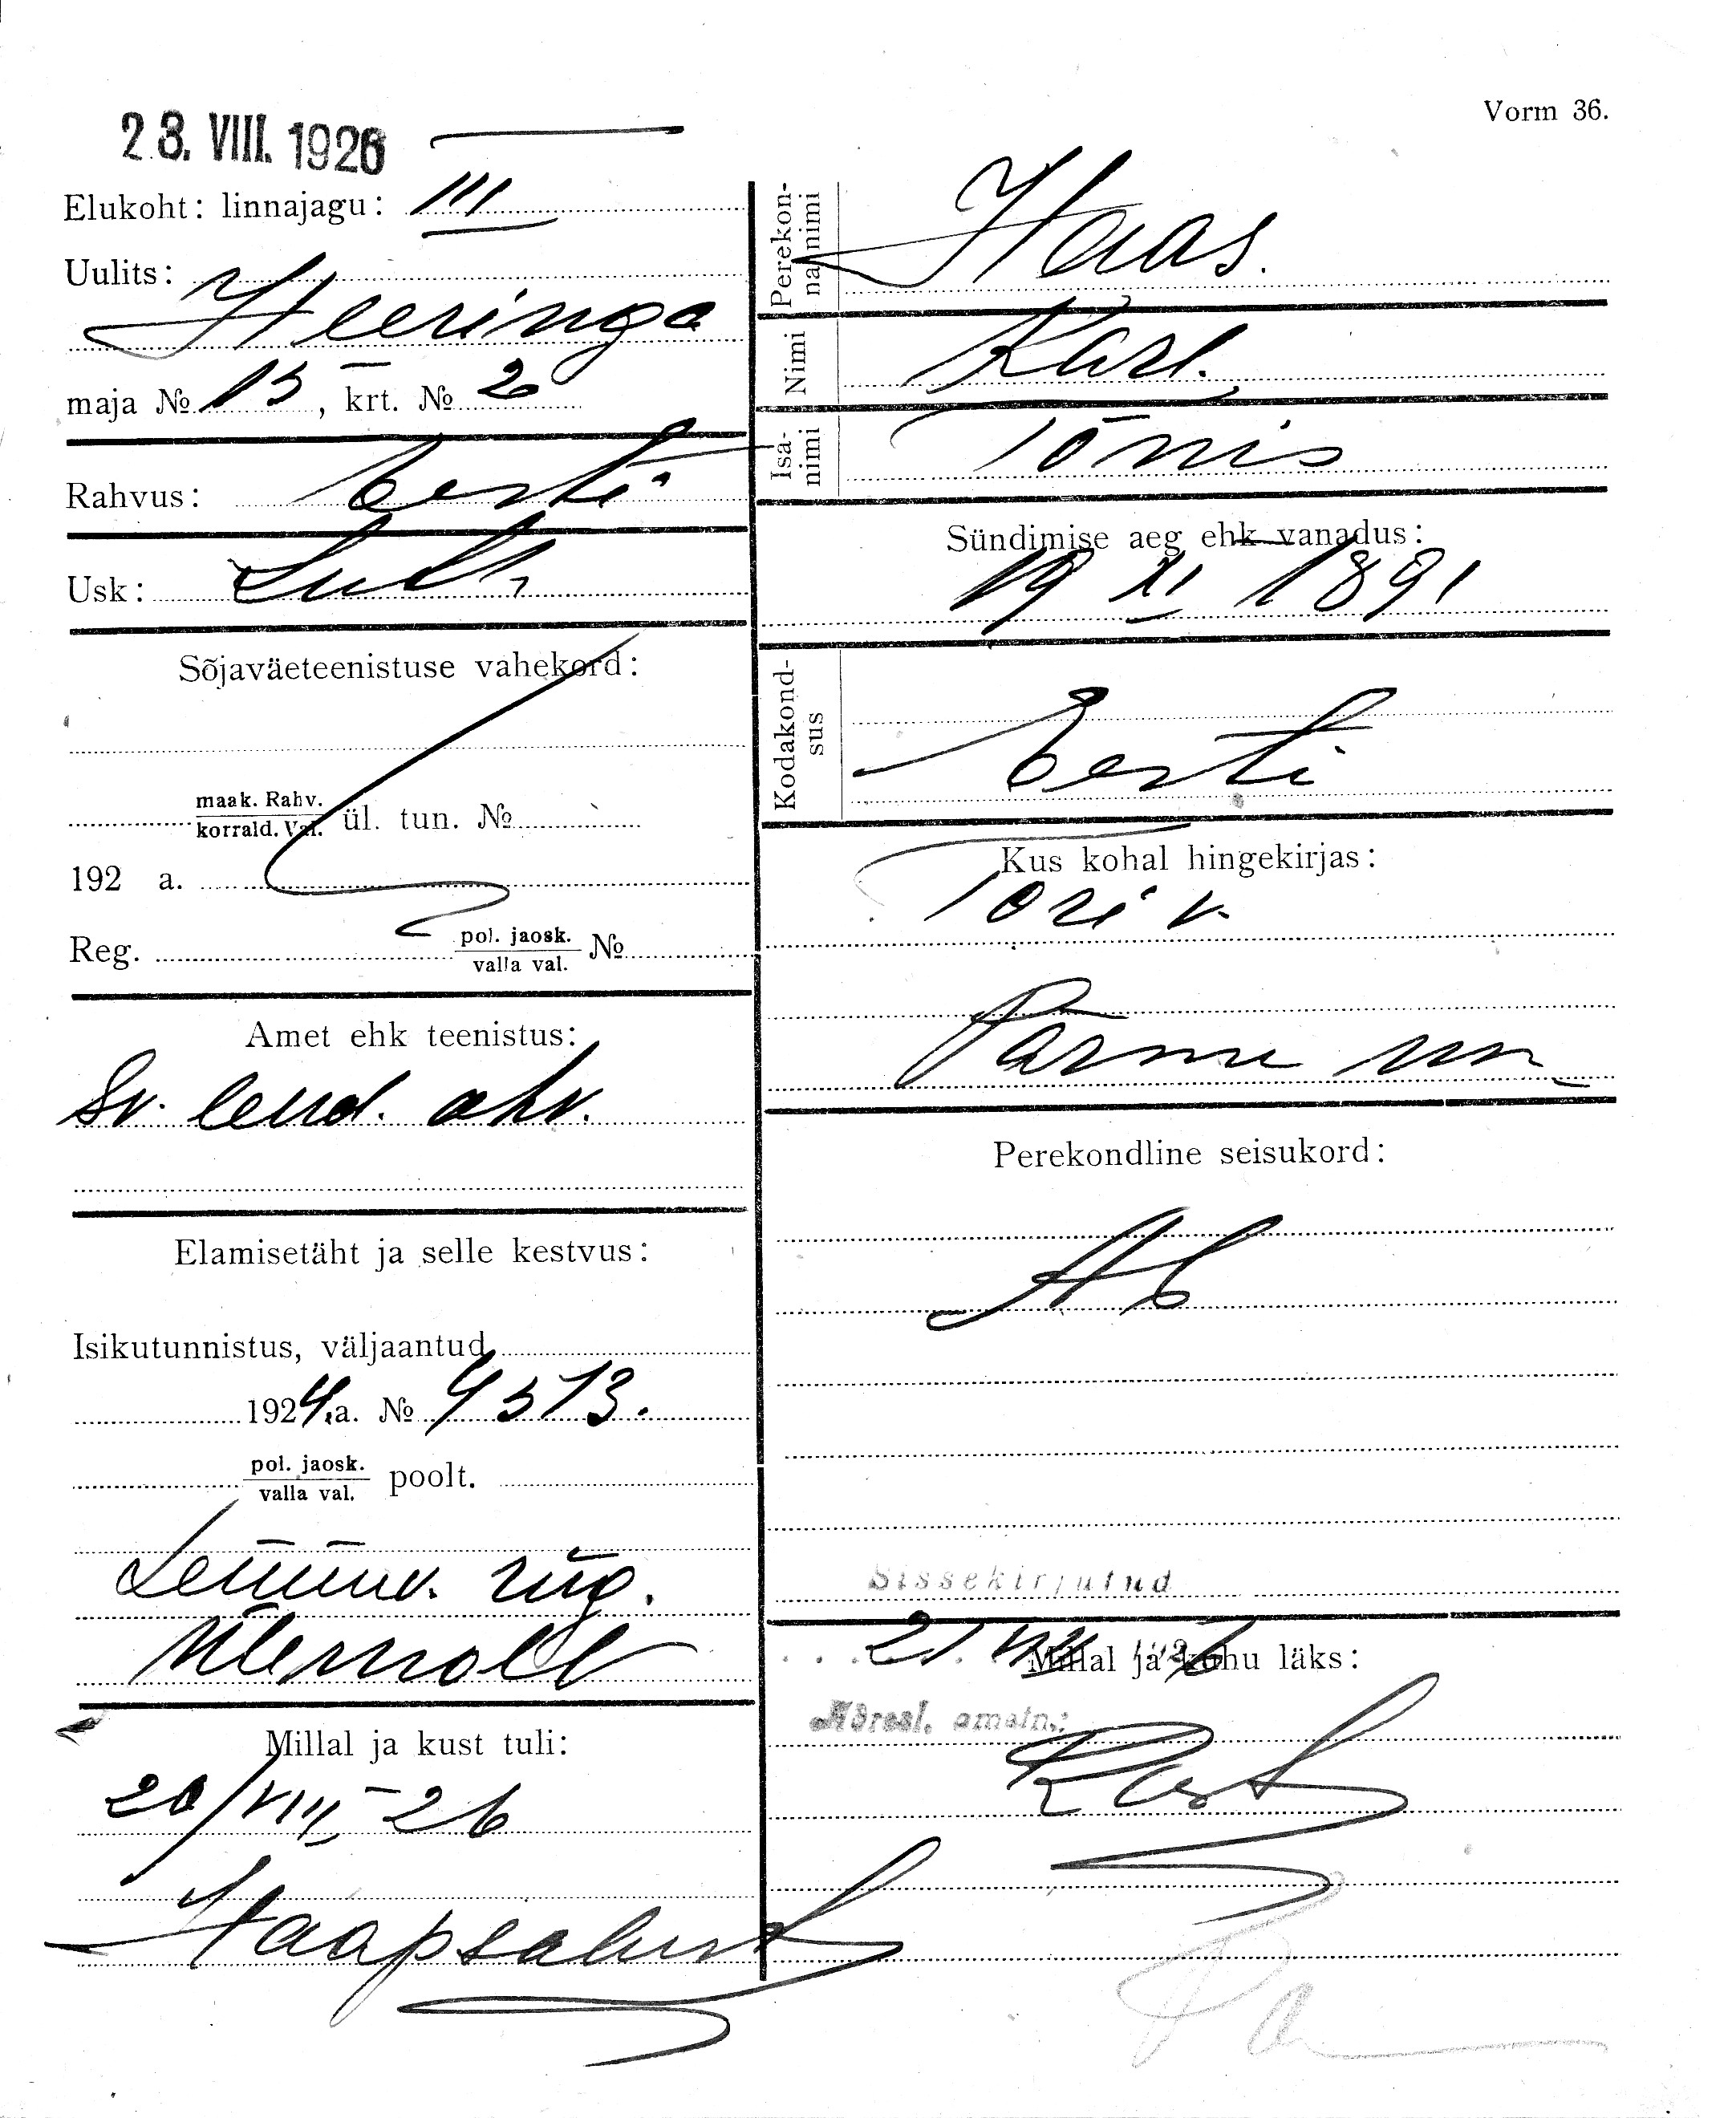 Vorm 36.
23. VIII. 1926
Elukoht: linnajagu: III
Uulits:
Heeringa
maja № 15, krt. № 2
Rahvus: Eesti
Usk: Luth.
Sõjaväeteenistuse vahekord:
maak. Rahv.
korrald. Val. ül. tun. №
192 a.
Reg. pol. jaosk. №
valla val.
Amet ehk teenistus:
Sv. lend. ohv.
Elamisetäht ja selle kestvus:
Isikutunnistus, väljaantud
1924.a. № 4513.
pol. jaosk. poolt.
valla val.
rüg.
Millal ja kust tuli:
20/VIII 26
Haapsalust
Perekon-
na nimi
Haas.
Nimi
Karl.
Isa-
nimi
Tõnis
Sündimise aeg ehk vanadus:
19 XI 1891
Kodakond-
sus
Eesti
Kus kohal hingekirjas:
Tori v.
Pärnu m
Perekondline seisukord:
Ab
Sissekirjutud
Millal ja kuhu läks: